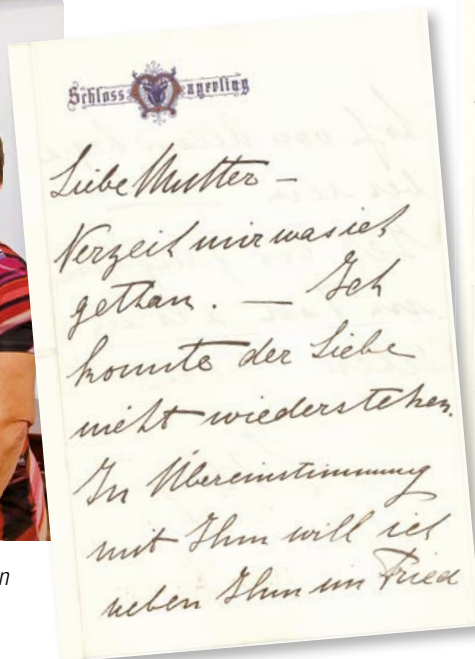 Schloss Mayerling
Liebe Mutter –
Verzeih mir was ich
gethan. — Ich
konnte der Liebe
nicht wiederstehen.
In Übereinstimmung
mit Ihm will ich
neben Ihm im Fried
n